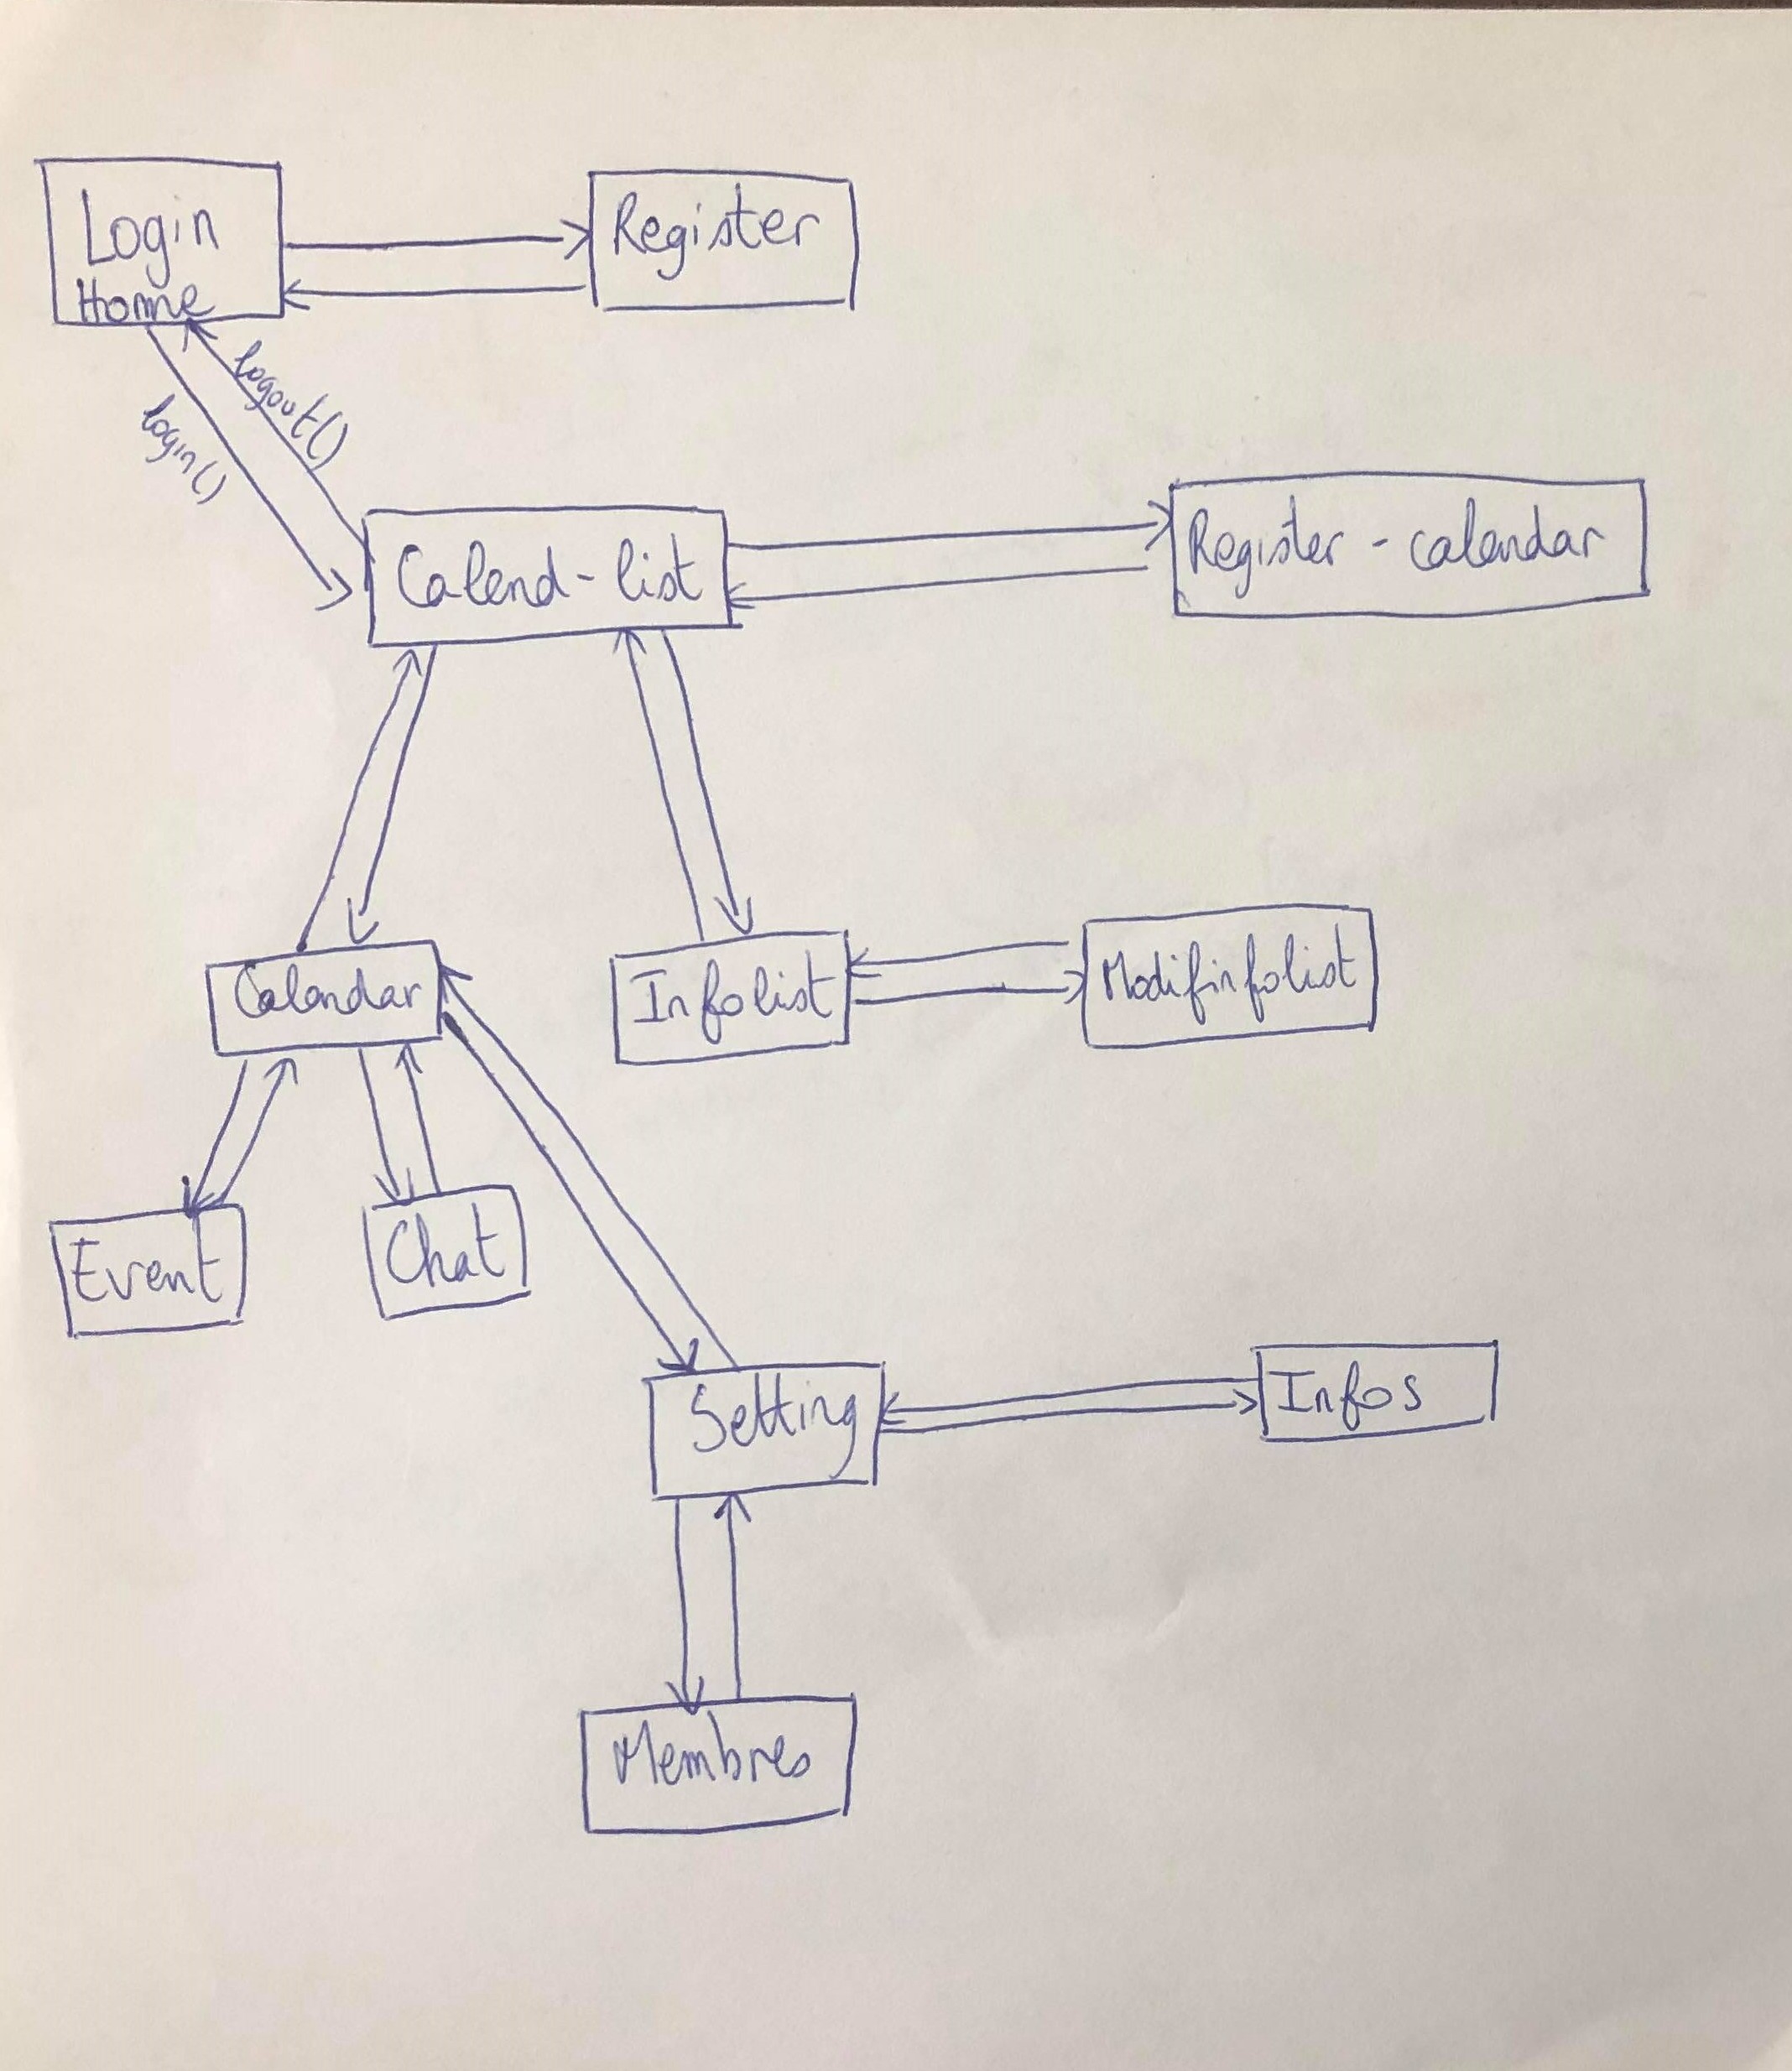 Login
Home
Register
logout()
login()
Calend-list
Register - calendar
Calendar
Infolist
Modifinfolist
Event
Chat
Setting
Infos
Membres